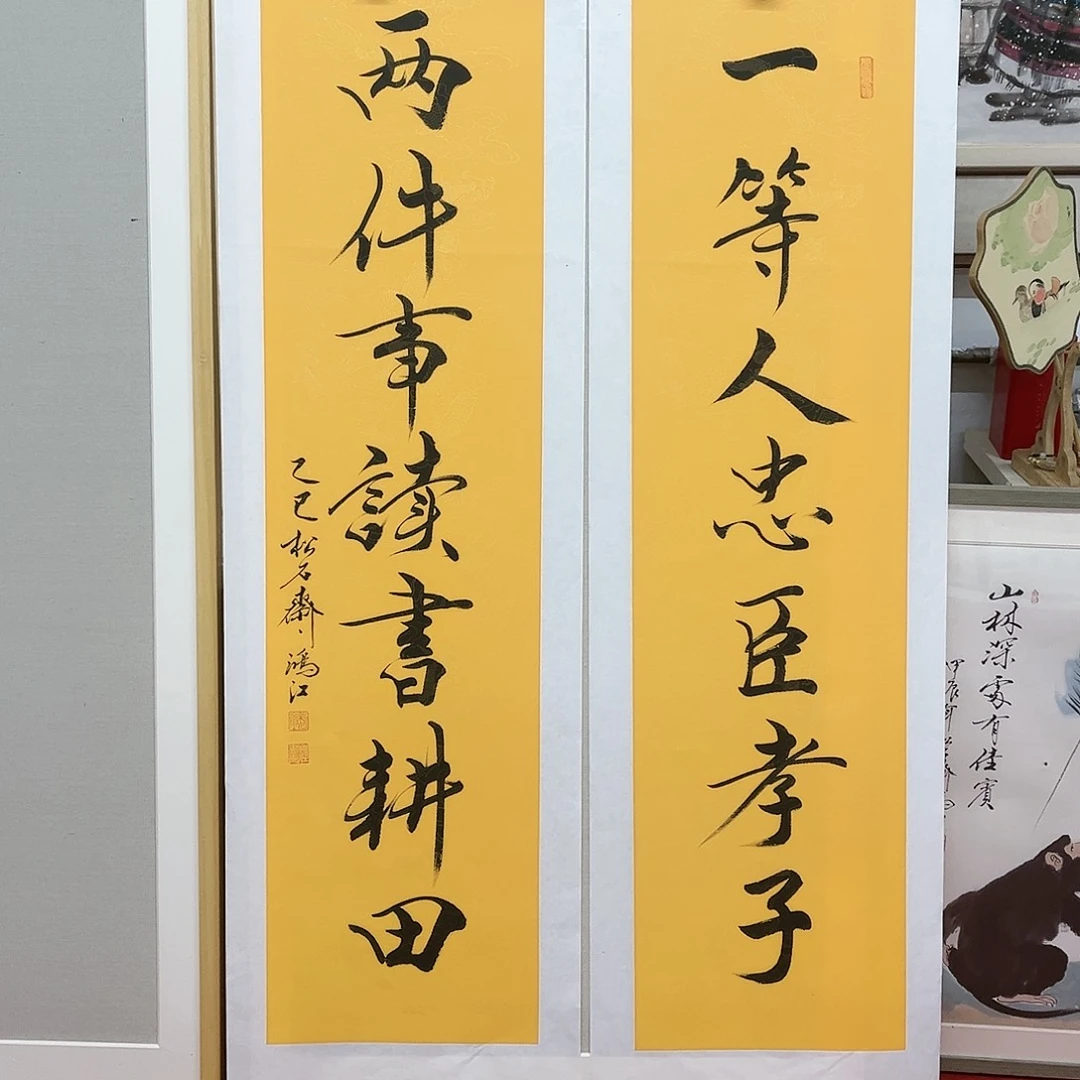 一等人忠臣孝子
两件事讀書耕田
乙巳松石齋鴻江
山林深處有佳賓
甲辰